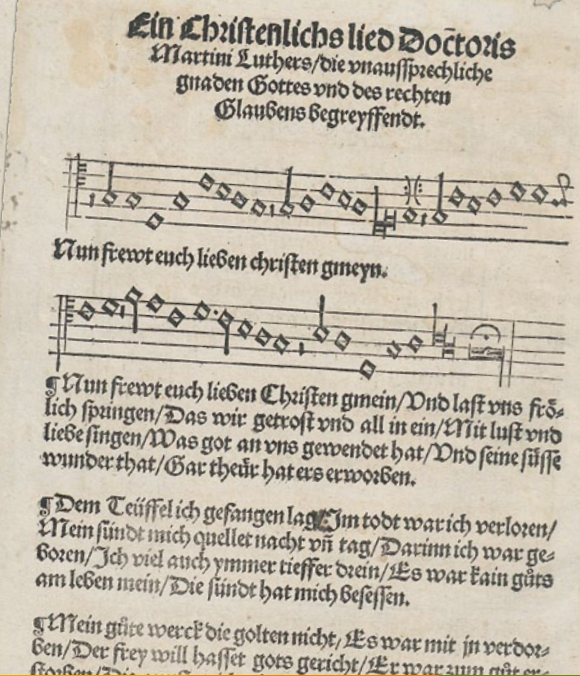 Ein Christenlichs lied Doctoris
Martini Luthers/die vnaussprechliche
gnaden Gottes vnd des rechten
Glaubens begreyffendt.
Nun frewt euch lieben christen gmeyn.
¶Nun frewt euch lieben Christen gmein/Vnd last vns frö-
lich springen/Das wir getrost vnd all in ein/Mit lust vnd
liebe singen/Was got an vns gewendet hat/Vnd seine süsse
wunder that/Gar theür hat ers erworben.
¶Dem Teüffel ich gefangen lag/Im todt war ich verloren/
Mein sündt mich quellet nacht vn̄ tag/Darinn ich war ge-
boren/Ich viel auch ymmer tieffer drein/Es war kain gůts
am leben mein/Die sündt hat mich besessen.
¶Mein gůte werck die golten nicht/Es war mit jn verdor-
ben/Der frey will hasset gots gericht/Er war zum gůt er-
storben/